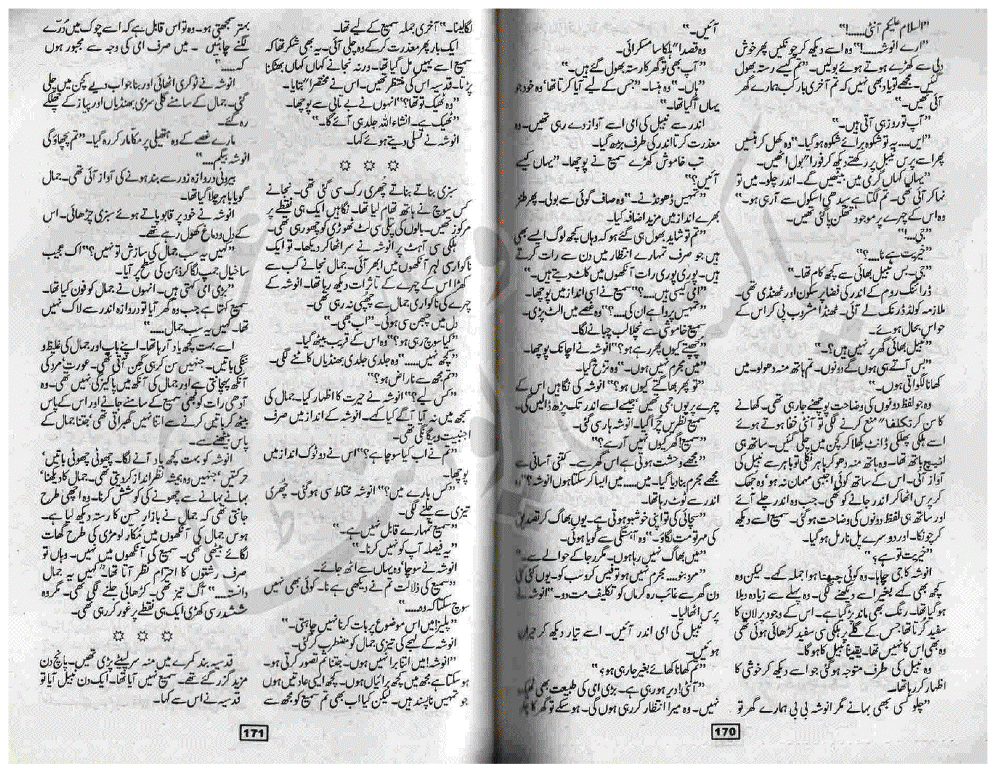 "السلام علیکم آنٹی.....!"
"ارے انوشہ...!" وہ اسے دیکھ کر چونکیں پھر خوش
دلی سے کھڑے ہوتے ہوئے بولیں۔ "تم کیسے رستہ بھول
گئیں۔ مجھے تو یاد بھی نہیں کہ تم آخری بار کب ہمارے گھر
آئی تھیں۔"
"آپ تو روز ہی آتی ہیں۔"
"ایں... یہ تو شکوہ برائے شکوہ ہو گیا۔" وہ کھل کر ہنسیں
پھر اسے پرس نبیل پر رکھتے دیکھ کر فوراً بول اٹھیں۔
"یہاں کہاں گرمی میں بیٹھیں گے۔ اندر چلو۔ میں تو
نہا کر آئی تھی۔ تم لگتا ہے سیدھی اسکول سے آ رہی ہو۔"
وہ اس کے چہرے پر موجود تھکن پا گئی تھیں۔
"جی...!"
"خیریت ہے نا....؟"
"جی۔ بس نبیل بھائی سے کچھ کام تھا۔"
ڈرائنگ روم کے اندر کی فضا پرسکون اور ٹھنڈی تھی۔
ملازمہ کولڈ ڈرنک لے آئی۔ ٹھنڈا مشروب پی کر اس کے
حواس بحال ہوئے۔
"نبیل بھائی گھر پر نہیں ہیں؟۔"
"بس آتے ہی ہوں گے دونوں۔ تم ہاتھ منہ دھو لو۔ میں
کھانا لگواتی ہوں۔"
وہ جو لفظ دونوں کی وضاحت پوچھنے جا رہی تھی۔ کھانے
کا سن کر تکلفاً منع کرنے لگی تو آنٹی خفا ہوتے ہوئے
اسے ہلکی پھلکی ڈانٹ پلا کر کچن میں چلی گئیں۔ ساتھ ہی
اٹیچ باتھ تھا۔ وہ ہاتھ منہ دھو کر باہر نکلی تو باہر سے نبیل کی
آواز آئی۔ اس کے ساتھ کوئی اجنبی مہمان نہ ہو وہ جھجک
کر پرس اٹھا کر اندر جانے کو تھی۔ جب وہ اندر چلے آئے
اور ساتھ ہی لفظ دونوں کی وضاحت ہو گئی۔ سمیع اسے دیکھ
کر چونکا۔ اور دوسرے پل نارمل ہو گیا۔
"خیریت تو ہے؟"
انوشہ کا جی چاہا۔ وہ کوئی چبھتا ہوا جملہ کہے۔ لیکن وہ
کچھ بھی کہے بغیر اسے دیکھنے لگی۔ وہ پہلے سے زیادہ دبلا
ہو گیا تھا۔ رنگ بھی ماند پڑ گیا ہے۔ اس کے وجود پر لان کا
سفید کرتا تھا جس کے گلے پر ہلکی سی سفید کڑھائی ہوئی تھی
وہ بھی اس کا نہیں تھا۔ یقیناً نبیل کا ہو گا۔
وہ نبیل کی طرف متوجہ ہو گئی جو اسے دیکھ کر خوشی کا
اظہار کر رہا تھا۔
"چلو کسی بھی بہانے مگر انوشہ بی بی ہمارے گھر تو
آئیں۔"
وہ قصداً ہلکا سا مسکرائی۔
"آپ بھی تو گھر کا رستہ بھول گئے ہیں۔"
"ہاں۔" وہ ہنسا۔ "جس کے لیے آیا کرتا تھا وہ خود جو
یہاں آ گیا تھا۔"
اندر سے نبیل کی امی اسے آواز دے رہی تھیں۔ وہ
معذرت کرتا اندر کی طرف بڑھ گیا۔
تب خاموش کھڑے سمیع نے پوچھا۔ "یہاں کیسے
آئیں؟"
"تمہیں ڈھونڈنے۔" وہ صاف گوئی سے بولی۔ پھر طنز
بھرے انداز میں مزید اضافہ کیا۔
"تم تو شاید بھول ہی گئے ہو کہ وہاں کچھ لوگ ایسے بھی
ہیں جو صرف تمہارے انتظار میں دن سے رات کرتے
ہیں۔ پوری پوری رات آنکھوں میں کاٹ دیتے ہیں۔"
"امی کیسی ہیں....؟" سمیع نے اسی انداز میں پوچھا۔
"تمہیں پروا ہے ان کی...؟" وہ غصے میں الٹ پڑی۔
سمیع خاموشی سے نچلا لب چبانے لگا۔
"چھپتے کیوں پھر رہے ہو؟" انوشہ نے اچانک پوچھا۔
"میں مجرم نہیں ہوں۔" وہ تڑخ گیا۔
"تو پھر بھاگتے کیوں ہو؟" انوشہ کی نگاہیں اس کے
چہرے پر یوں جمی تھیں جیسے اسے اندر تک پڑھ ڈالیں گی۔
سمیع نظریں چرا گیا۔ انوشہ ہار سی گئی۔
"سمیع! گھر کیوں نہیں آ رہے؟"
"مجھے وحشت ہوتی ہے اس گھر سے۔ کتنی آسانی سے
مجھے مجرم بنا دیا گیا۔ میں.... میں ایسا کر سکتا ہوں انوشہ؟" وہ
اندر سے ٹوٹ رہا تھا۔
"سچائی کی تو اپنی خوشبو ہوتی ہے۔ یوں بھاگ کر تصدیق
کی مہر تو مت لگاؤ۔" وہ آہستگی سے گویا ہوئی۔
"میں بھاگ نہیں رہا ہوں۔ مگر رجا کے حوالے سے۔"
"مرد بنو.... مجرم نہیں ہو تو فیس کرو سب کو۔ یوں کئی کئی
دن گھر سے غائب رہ کر ماں کو تکلیف مت دو۔" انوشہ نے
پرس اٹھا لیا۔
نبیل کی امی اندر آئیں۔ اسے تیار دیکھ کر حیران
ہوئیں۔
"تم کھانا کھائے بغیر جا رہی ہو؟"
"آنٹی! دیر ہو رہی ہے۔ بڑی امی کی طبیعت بھی ٹھیک
نہیں۔ وہ میرا انتظار کر رہی ہوں گی۔ ہو سکے تو گھر کا چکر
170
لگا لینا۔" آخری جملہ سمیع کے لیے تھا۔
ایک بار پھر معذرت کر کے وہ چلی آئی۔ یہ بھی شکر تھا کہ
سمیع اسے یہیں مل گیا تھا۔ ورنہ نجانے کہاں کہاں بھٹکنا
پڑتا۔ قدسیہ اس کی منتظر تھیں۔ اس نے مختصراً بتایا۔
"وہ ٹھیک تو تھا؟" انہوں نے بے تابی سے پوچھا۔
"ٹھیک ہے۔ انشاء اللہ جلد ہی آئے گا۔"
انوشہ نے تسلی دیتے ہوئے کہا۔
☼ ☼ ☼
سبزی بناتے بناتے چھری رک سی گئی تھی۔ نجانے
کس سوچ نے ہاتھ تھام لیا تھا۔ نگاہیں ایک ہی نقطے پر
مرکوز تھیں۔ بالوں کی پتلی سی لٹ ٹھوڑی کو چھو رہی تھی۔
ہلکی سی آہٹ پر انوشہ نے سر اٹھا کر دیکھا۔ تو ایک
ناگواری کی لہر آنکھوں میں ابھر آئی۔ جمال نجانے کب سے
کھڑا اس کے چہرے کے تاثرات دیکھ رہا تھا۔ انوشہ کے
چہرے کی ناگواری جمال سے چھپی نہ رہی تھی۔
دل میں چبھن سی ہوئی۔ "اب بھی۔"
"کیا سوچ رہی ہو؟" وہ اس کے قریب بیٹھ گیا۔
"کچھ نہیں....." وہ جلدی جلدی بھنڈیاں کاٹنے لگی۔
"تم مجھ سے ناراض ہو؟"
"کس لیے؟" انوشہ نے حیرت کا اظہار کیا۔ جمال کی
سمجھ میں نہ آیا آگے کیا کہے۔ انوشہ کے انداز میں صرف
اجنبیت و بیگانگی تھی۔
"تم نے اب کیا سوچا ہے؟" اس نے دو ٹوک انداز میں
پوچھا۔
"کس بارے میں؟" انوشہ محتاط سی ہو گئی۔ چھری
تیزی سے چلنے لگی۔
"سمیع تمہارے قابل نہیں ہے۔"
"یہ فیصلہ آپ کو نہیں کرنا۔"
انوشہ نے سوچا وہ یہاں سے اٹھ جائے۔
"سمیع کی ذلالت تم نے دیکھی ہے نا۔ کوئی بھی نہیں
سوچ سکتا کہ وہ....."
"پلیز! میں اس موضوع پر بات کرنا نہیں چاہتی۔"
انوشہ کے لہجے کی تیزی جمال کو مضطرب کر گئی۔
"انوشہ! میں اتنا برا نہیں ہوں۔ جتنا تم تصور کرتی ہو۔
ہو سکتا ہے مجھ میں کچھ برائیاں ہوں۔ کچھ ایسی عادتیں ہوں
جو تمہیں ناپسند ہیں۔ لیکن کیا اب بھی تم سمیع کو مجھ سے
بہتر سمجھتی ہو۔ وہ تو اس قابل ہے کہ اسے چوک میں درّے
لگنے چاہئیں۔ میں صرف امی کی وجہ سے مجبور ہوں
کہ....."
انوشہ نے ٹوکری اٹھائی اور بنا جواب دیے کچن میں چلی
گئی۔ جمال کے سامنے گلی سڑی بھنڈیاں اور پیاز کے چھلکے
رہ گئے۔
مارے غصے کے وہ ہتھیلی پر مکا مار کر رہ گیا۔ "تم پچھتاؤ گی
انوشہ بیگم...."
بیرونی دروازہ زور سے بند ہونے کی آواز آئی تھی۔ جمال
گویا باہر چلا گیا تھا۔
انوشہ نے خود پر قابو پاتے ہوئے سبزی چڑھائی۔ اس
کے دل و دماغ کھول رہے تھے۔
"کہیں یہ سب جمال کی سازش تو نہیں؟" اک عجیب
سا خیال جمپ لگا کر ذہن کی سطح پر آیا۔
"بڑی امی کہتی ہیں۔ انہوں نے جمال کو فون کیا تھا۔
سمیع کہتا ہے جب وہ گھر آیا تو دروازہ اندر سے لاک نہیں
تھا۔ کہیں یہ سب جمال....."
اسے بہت کچھ یاد آ رہا تھا۔ اپنے باپ اور جمال کی غلیظ و
ننگی باتیں۔ جنہیں سن کر ہی گھن آتی تھی۔ عورت مرد کی
آنکھ پہچانتی ہے اور جمال کی آنکھ میں پاکیزگی نہیں تھی۔ وہ
آدھی رات کو کبھی سمیع کے سامنے جانے اور اس کے پاس
بیٹھ کر باتیں کرنے سے اتنا نہیں گھبراتی تھی جتنا جمال کے
پاس بیٹھنے سے۔
انوشہ کو بہت کچھ یاد آنے لگا۔ چھوٹی چھوٹی باتیں،
حرکتیں، جنہیں وہ ہمیشہ نظرانداز کر دیتی تھی۔ جمال کا دیکھنا،
بہانے بہانے سے چھونے کی کوشش کرنا۔ وہ اچھی طرح
جانتی تھی کہ جمال نے بازار حسن کا رستہ دیکھ لیا ہے۔
ہوس جمال کی آنکھوں میں مکار لومڑی کی طرح گھات
لگائے بیٹھی تھی۔ سمیع کی آنکھوں میں نہیں۔ وہاں تو
صرف رشتوں کا احترام نظر آتا تھا۔ "کہیں یہ جمال
دانستہ....." آگ تیز تھی۔ کڑھائی جلنے لگی تھی۔ مگر وہ
ششدر سی کھڑی ایک ہی نقطے پر غور کر رہی تھی۔
☼ ☼ ☼
قدسیہ بند کمرے میں منہ سر لپیٹے پڑی تھیں۔ پانچ دن
مزید گزر گئے تھے۔ سمیع نہیں آیا تھا۔ ایک دن نبیل آیا تو
قدسیہ نے اس سے کہا۔
171